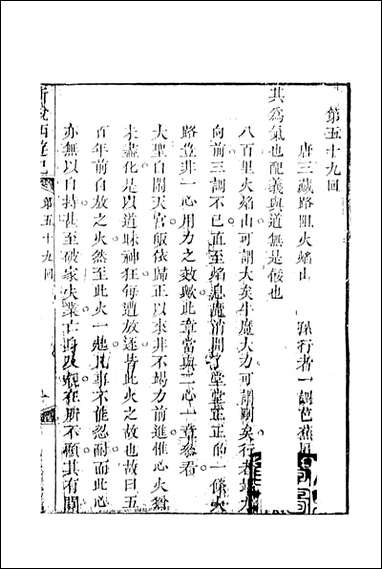 第五十九回
唐三藏路阻火焰山　孫行者一調芭蕉扇
其爲氣也配義與道無是餒也
八百里火焰山可謂大矣牛魔大力可謂剛矣行者竭力
向前三調不已直至焰息魔消闢了堂堂正正的一條大
路豈非一心用力之效歟此章當與二心一章叅看
大聖自鬧天宮皈依歸正以來非不竭力前進惟心火猶
未盡化是以道昧神狂每遭放逐皆此火之故也故曰五
百年前自放之火然至此火一起凡事不能忍耐而此心
亦無以自持甚至破家失業亡身及親在所不顧其有關
新說西遊記　第五十九回